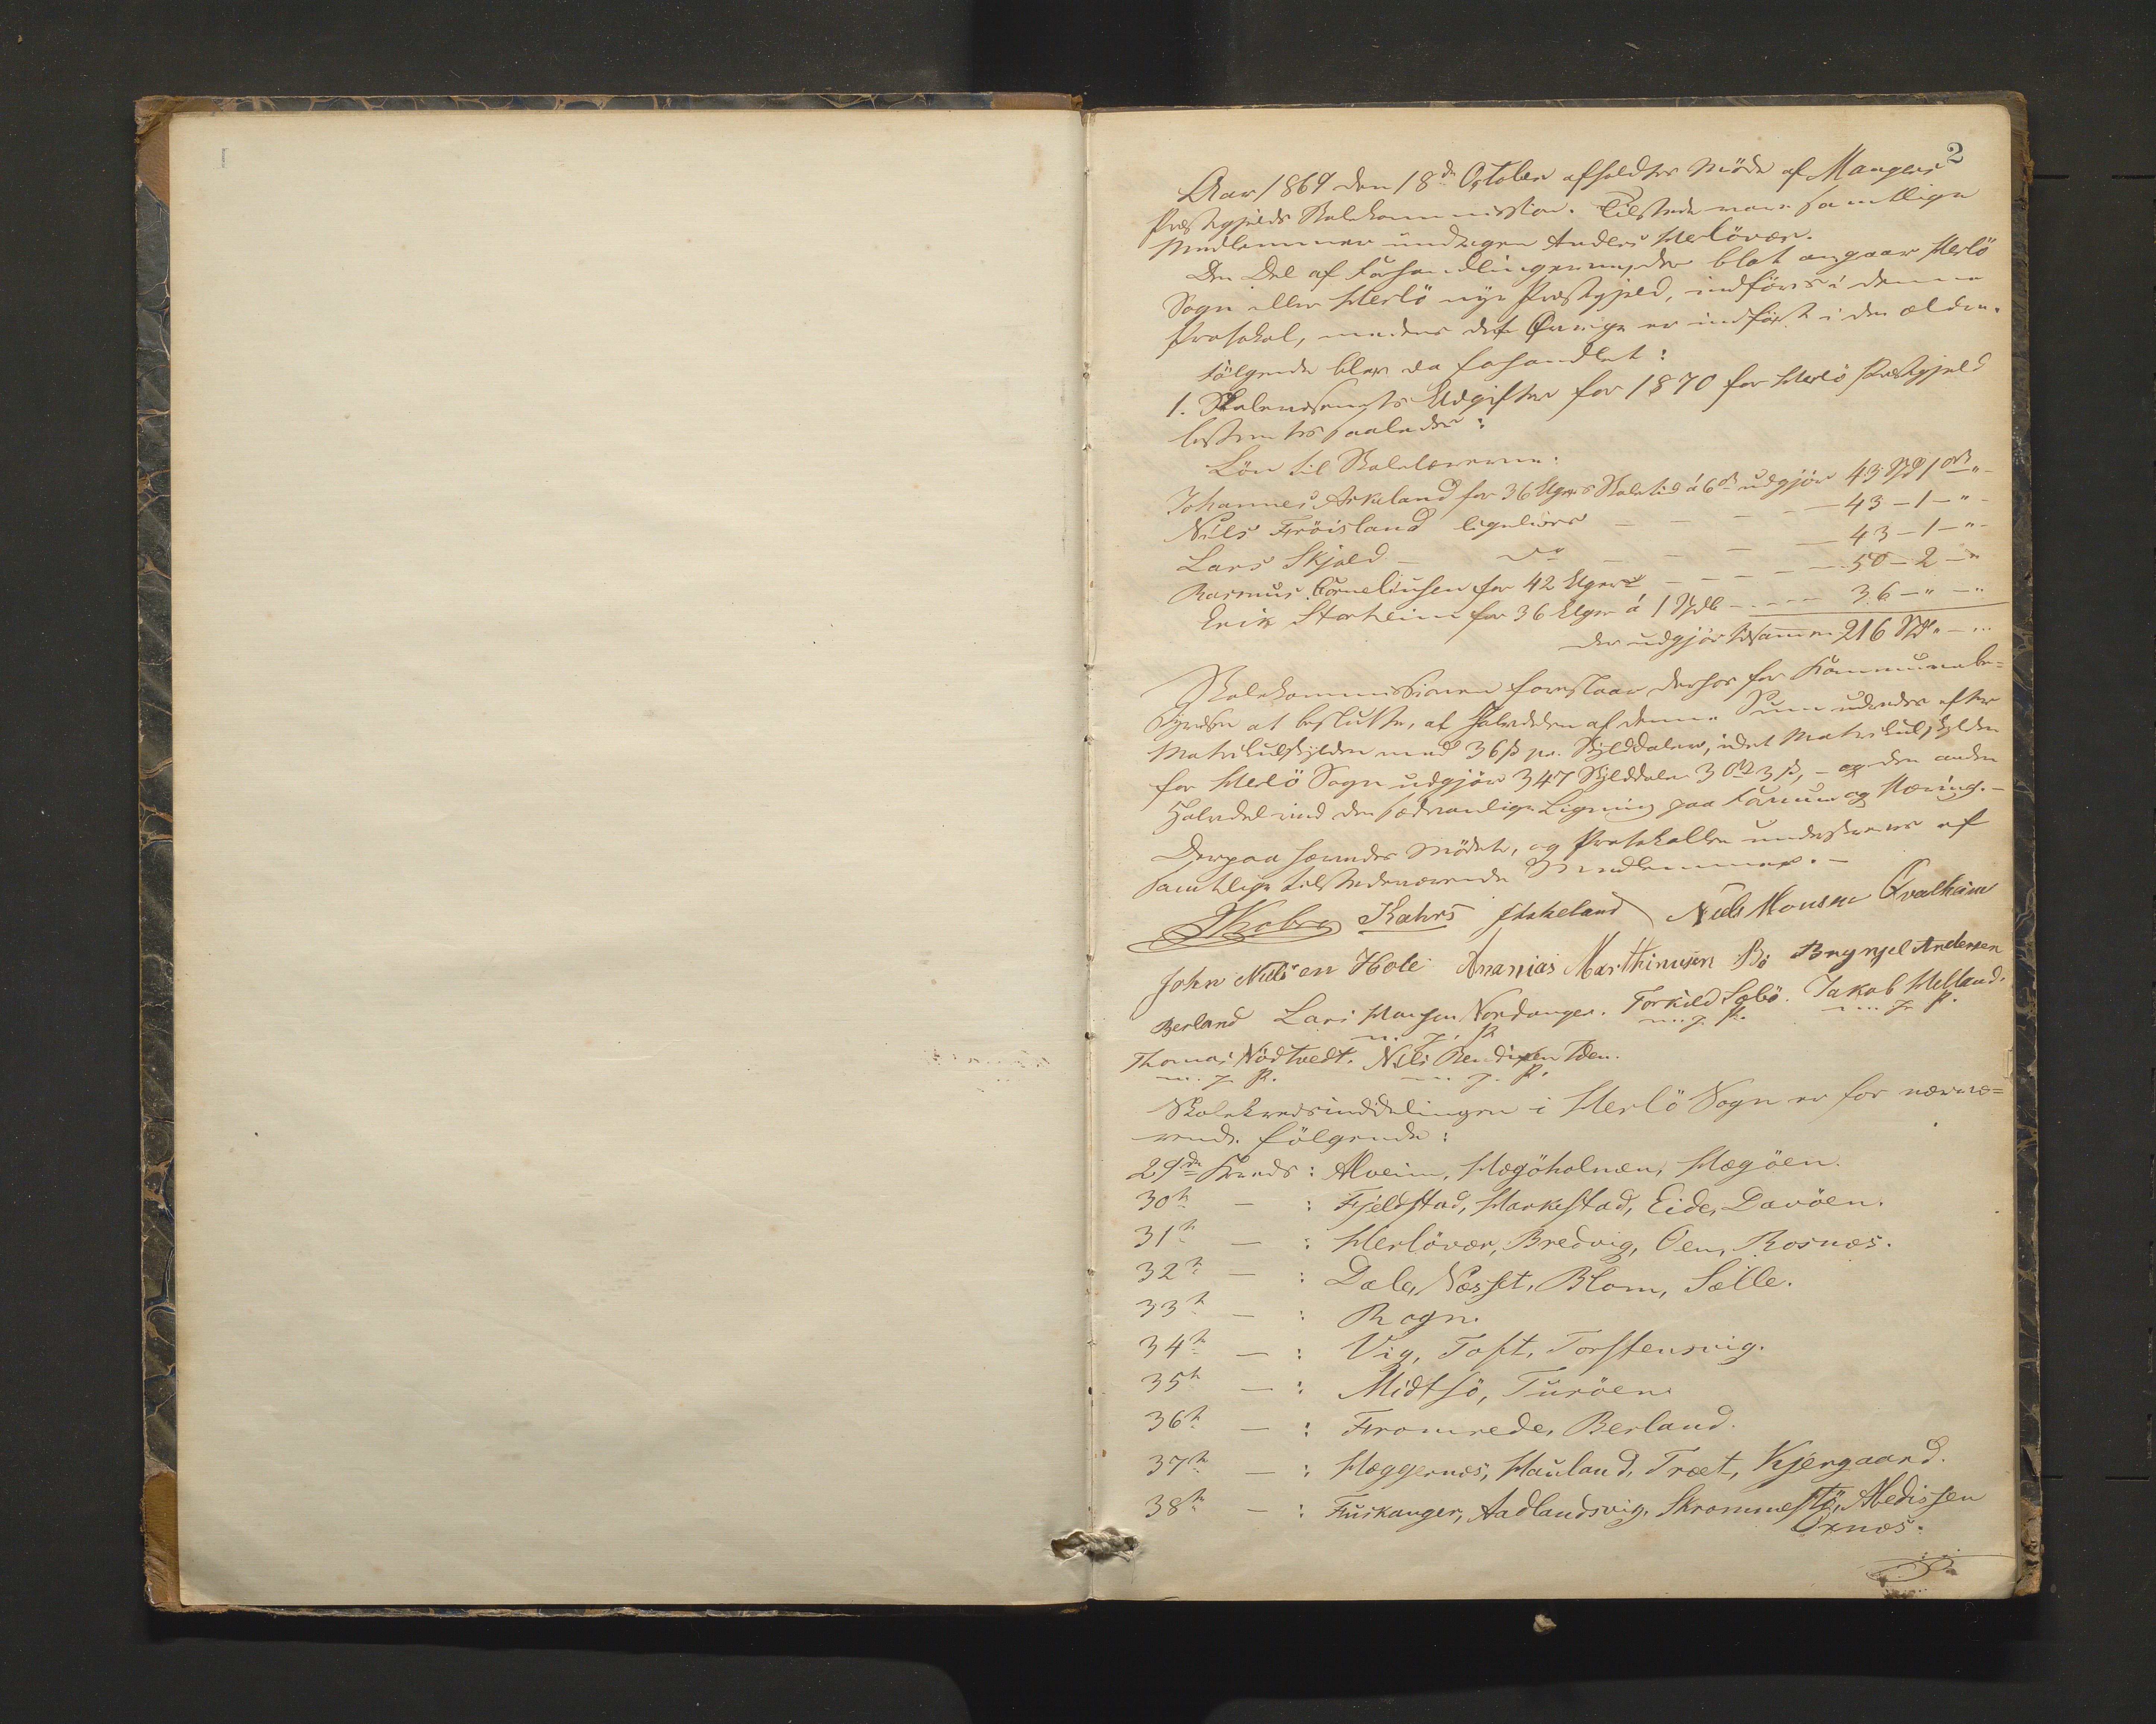 1
2
Aar 1869 den 18de October afholdtes Möde af Mangers
Præstegjelds Skolekommission. Tilstede vare samtlige
Medlemmer undtagen Anders Herlövær.
Den Del af Forhandlingerne, der blot angaar Herlö
Sogn eller Herlö nye Præstegjeld, indföres i denne
Protokol, medens det Övrige er indfört i den ældre.
Fölgende blev da forhandlet:
1. Skolevæsenets Udgifter for 1870 for Herlö Præstegjeld
bestemtes saaledes:
Lön til Skolelærerne:
Johannes Askeland for 36 Ugers Skoletid á 6 ort udgjör 43 Spd 1 ort "-
Nils Fröisland ligeledes - - - - 43 - 1 - "-
Lars Skjold - do - - - - 43 - 1 - "-
Rasmus Corneliusen for 42 Uger - - - - 50 - 2 - "
Erik Storheim for 36 Uger á 1 Spdlr - - - 36 - " - "
der udgjör tilsammen 216 Spd " - "
Skolekommissionen foreslaar derfor for Kommunebe=
styrelsen at beslutte, at Halvdelen af denne Sum udredes efter
Matrikulskylden med 36 ß pr. Skylddaler, idet Matrikulskylden
for Herlö Sogn udgjör 347 Skylddaler 3 ort 3 ß, - og den anden
Halvdel ved den sædvanlige Ligning paa Formue og Næring. -
Derpaa hævedes Mödet, og Protokollen underskreves af
samtlige tilstedeværende Medlemmer. -
Kahrs Askeland Niels Monsen Qvalheim
John Nilsen Hole Ananias Marthinusen Bö Brynjel Andersen
Berland Lars Hansen Nordanger. Torkild Sæbö. Jakob Helland.
m. p. P. m. p. P. m. p. P.
Thomas Nödtvedt. Nils Bendixen Töen.
m. p. P. m. p. P.
Skolekredsinddelingen i Herlö Sogn er for nærvæ=
rende fölgende:
29de Kreds: Alveim, Hægöholmen, Hægöen.
30te - : Fjeldstad, Harkestad, Eide, Davöen.
31te - : Herlövær, Bredvig, Öen, Rosnæs.
32te - : Dale, Næsset, Blom, Sælle.
33te - : Rogn.
34te - : Vig, Toft, Torstensvig.
35te - : Midtsö, Turöen.
36te - : Fromrede, Berland.
37te - : Hæggernes, Hauland, Træt, Kjergaard.
38te - : Huskanger, Aadlandsvig, Skrommestö, Abedissen
Oxnæs.